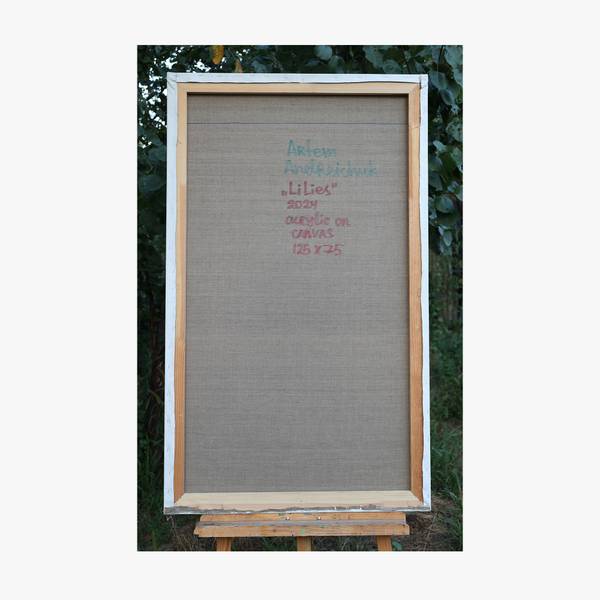 Artem
Andreichuk
„LiLies"
2024
acrylic on
CANVAS
125 x 75